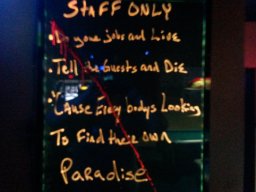 STAFF ONLY
• Do your jobs and Live
• Tell the Guests and Die
• 'Cause Every bodys Looking
To Find there own
Paradise